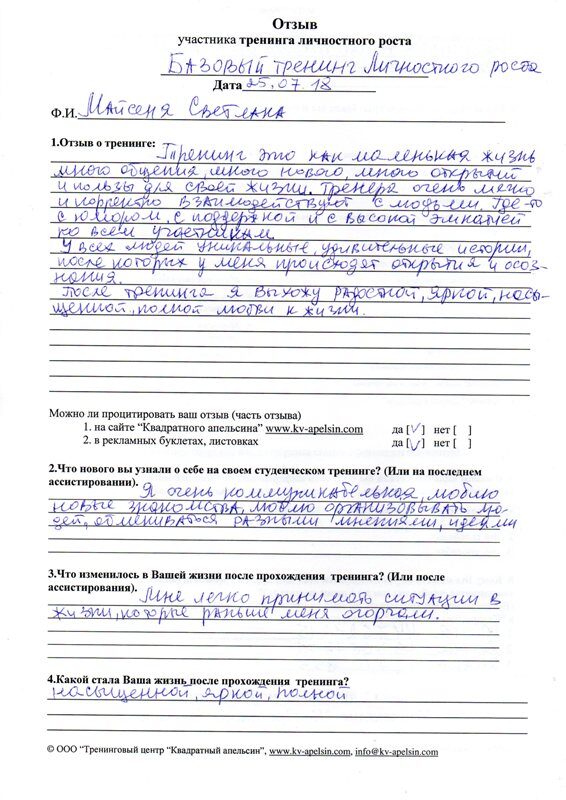 Отзыв
участника тренинга личностного роста
Базовый тренинг Личностного роста
Дата 25.07.18
Ф.И. Майсеня Светлана
1.Отзыв о тренинге: Тренинг это как маленькая жизнь
много общения, много нового, много открытий
и пользы для своей жизни. Тренера очень мягко
и корректно взаимодействует с людьми. Где-то
с юмором, с поддержкой и с высокой эмпатией
ко всем участникам
У всех людей уникальные, удивительные истории,
после которых у меня происходят открытия и осоз-
нания.
После тренинга я выхожу радостной, яркой, насы-
щенной, полной любви к жизни.
Можно ли процитировать ваш отзыв (часть отзыва)
1. на сайте “Квадратного апельсина” www.kv-apelsin.com да [√] нет [ ]
2. в рекламных буклетах, листовках да [√] нет [ ]
2.Что нового вы узнали о себе на своем студенческом тренинге? (Или на последнем
ассистировании). Я очень коммуникабельная, люблю
новые знакомства, люблю организовывать лю-
дей, обмениваться разными мнениями, идеями
3.Что изменилось в Вашей жизни после прохождения тренинга? (Или после
ассистирования). Мне легко принимать ситуации в
жизни, которые раньше меня огорчали.
4.Какой стала Ваша жизнь после прохождения тренинга?
насыщенной, яркой, полной
© ООО “Тренинговый центр “Квадратный апельсин”, www.kv-apelsin.com, info@kv-apelsin.com